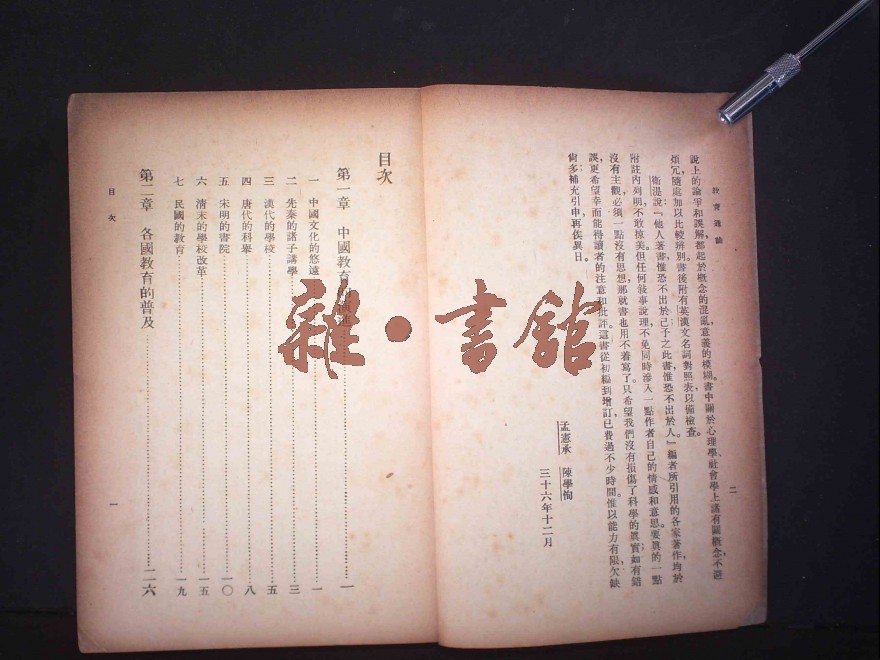 教育通論
二
說上的論爭和誤解，都起於概念的混亂，意義的模糊。書中關於心理學、社會學上諸有關概念，不避
煩冗，隨處加以比較辨別。書後附有英漢文名詞對照表，以備檢查。
衞湜說：『他人著書，惟恐不出於己；予之此書，惟恐不出於人。』編者所引用的各家著作，均於
附註內列明，不敢掠美。但任何敍事說理，不免同時滲入一點作者自己的情感和意思。要眞的一點
沒有主觀，必須一點沒有思想，那就書也用不着寫了。只希望我們沒有損傷了科學的眞實；如有錯
誤，更希望幸而能得讀者的注意和批評。這書從初編到增訂，已費過不少時間。惟以能力有限，欠缺
尙多，補充引申，再俟異日。
孟憲承 陳學恂
三十六年十二月
目次
第一章 中國教育的 一
一 中國文化的悠遠 一
二 先秦的諸子講學 三
三 漢代的學校 五
四 唐代的科舉 八
五 宋明的書院 一〇
六 清末的學校改革 一五
七 民國的教育 一九
第二章 各國教育的普及 二六
目次
一
雜•書館